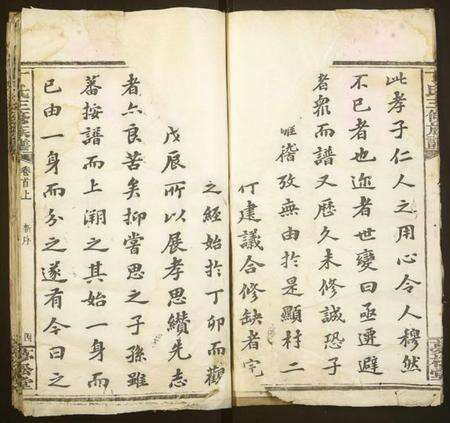 此孝子仁人之用心令人穆然
不已者也迩者世變日亟遷避
者衆而譜又歷久未修誠恐子
雖稽攷無由於是顯村二
仃建議合修缺者完
之經始於丁卯而觀
戊辰所以展孝思纘先志
者亦良苦矣抑嘗思之子孫雖
蕃按譜而上溯之其始一身而
已由一身而分之遂有今日之
氏三修族譜
卷首上
新序
四